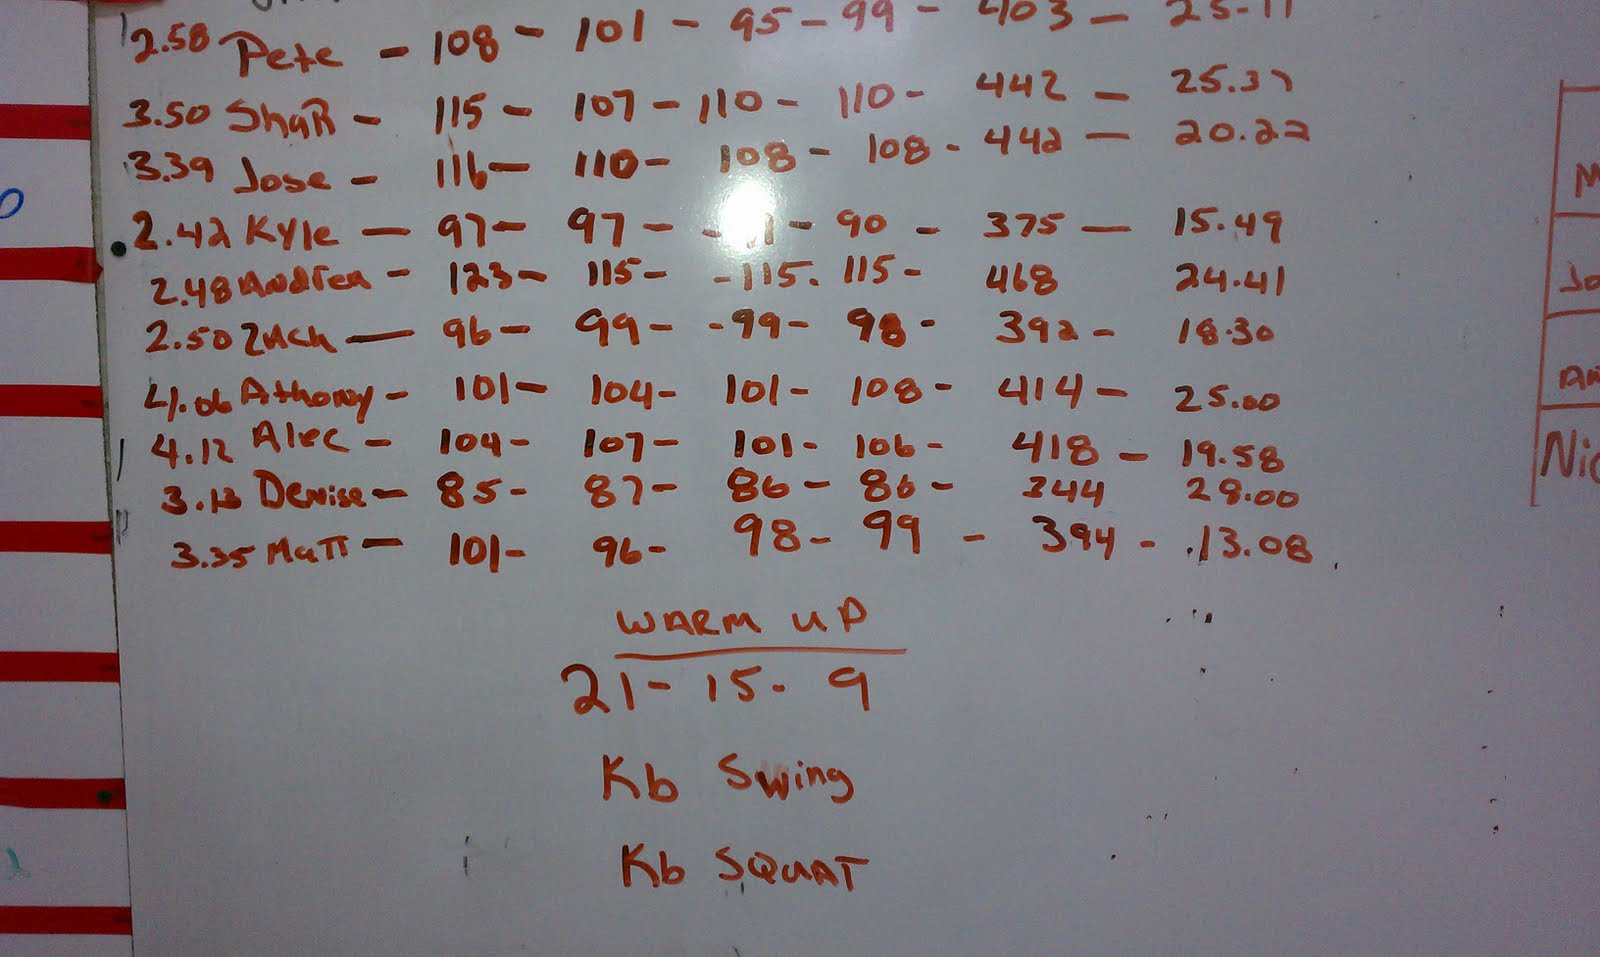 2.58 Pete - 108 - 101 - 95 - 99 - 403 - 25.11
3.50 ShaR - 115 - 107 - 110 - 110 - 442 - 25.37
3.39 Jose - 116 - 110 - 108 - 108 - 442 - 20.22
2.42 Kyle - 97 - 97 - - 90 - 375 - 15.49
2.48 Andrea - 123 - 115 - - 115. 115 - 468 24.41
2.50 Zach - 96 - 99 - - 99 - 98 - 392 - 18.30
4.06 Athony - 101 - 104 - 101 - 108 - 414 - 25.00
4.12 Alec - 104 - 107 - 101 - 106 - 418 - 19.58
3.13 Denise - 85 - 87 - 86 - 86 - 344 28.00
3.35 MaTT - 101 - 96 - 98 - 99 - 394 - .13.08
WARM UP
21 - 15 - 9
Kb Swing
Kb SQUAT
M
Jo
An
Nic